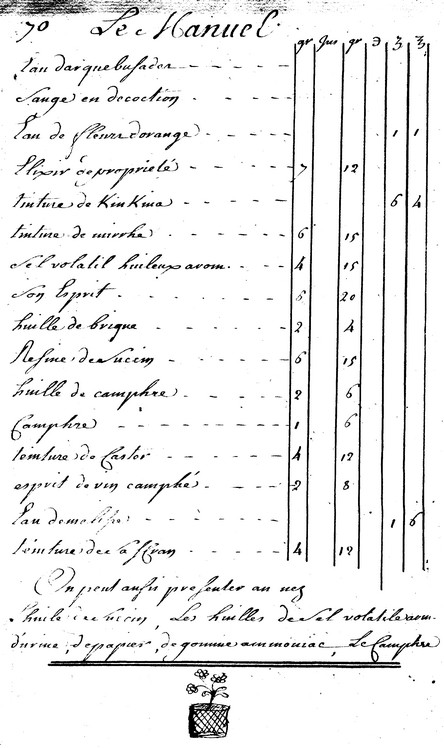 70 Le Manuel
gr Jus gr ℈ ʒ ℥
Eau darquebusades
Sauge en decoction
Eau de fleurs dorange 1 1
Elixir de proprieté 7 12
tinture de KinKina 6 4
tinture de mirrhe 6 15
Sel volatil huileux arom. 4 15
Son Esprit 6 20
huille de brique 2 4
Resine de Sucein 6 15
huille de camphre 2 6
Camphre 1 6
teinture de Castor 4 12
esprit de vin camphé 2 8
Eau de melisse 1 6
teinture de Saffran 4 12
On peut aussi presenter au nez
l'huile de Sucein, Les huilles de Sel volatile arom.
d'urine, de papier, de gomme ammoniac, Le Camphre